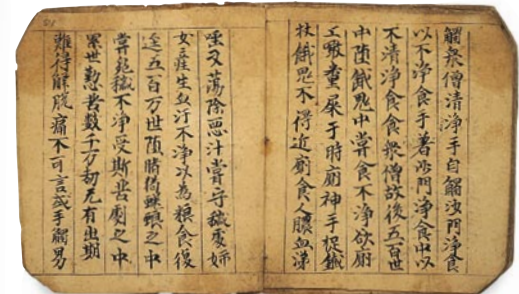 觸衆僧清淨手自觸沙門淨食
以不淨食手著沙門淨食中以
不清淨食食衆僧故後五百世
中堕餓鬼中甞食不淨欲廁
上取糞屎于時廁神手捉鐵
杖餓鬼不得近廁食人膿血涕
唾又蕩除惡汁甞守穢處婦
女產生血汙不淨以為粮食復
逕五百万世堕蜣蜋之中
甞穢不淨受斯苦劇之中
累世懃苦數千万劫无有出期
難得解脫痛不可言或手觸男